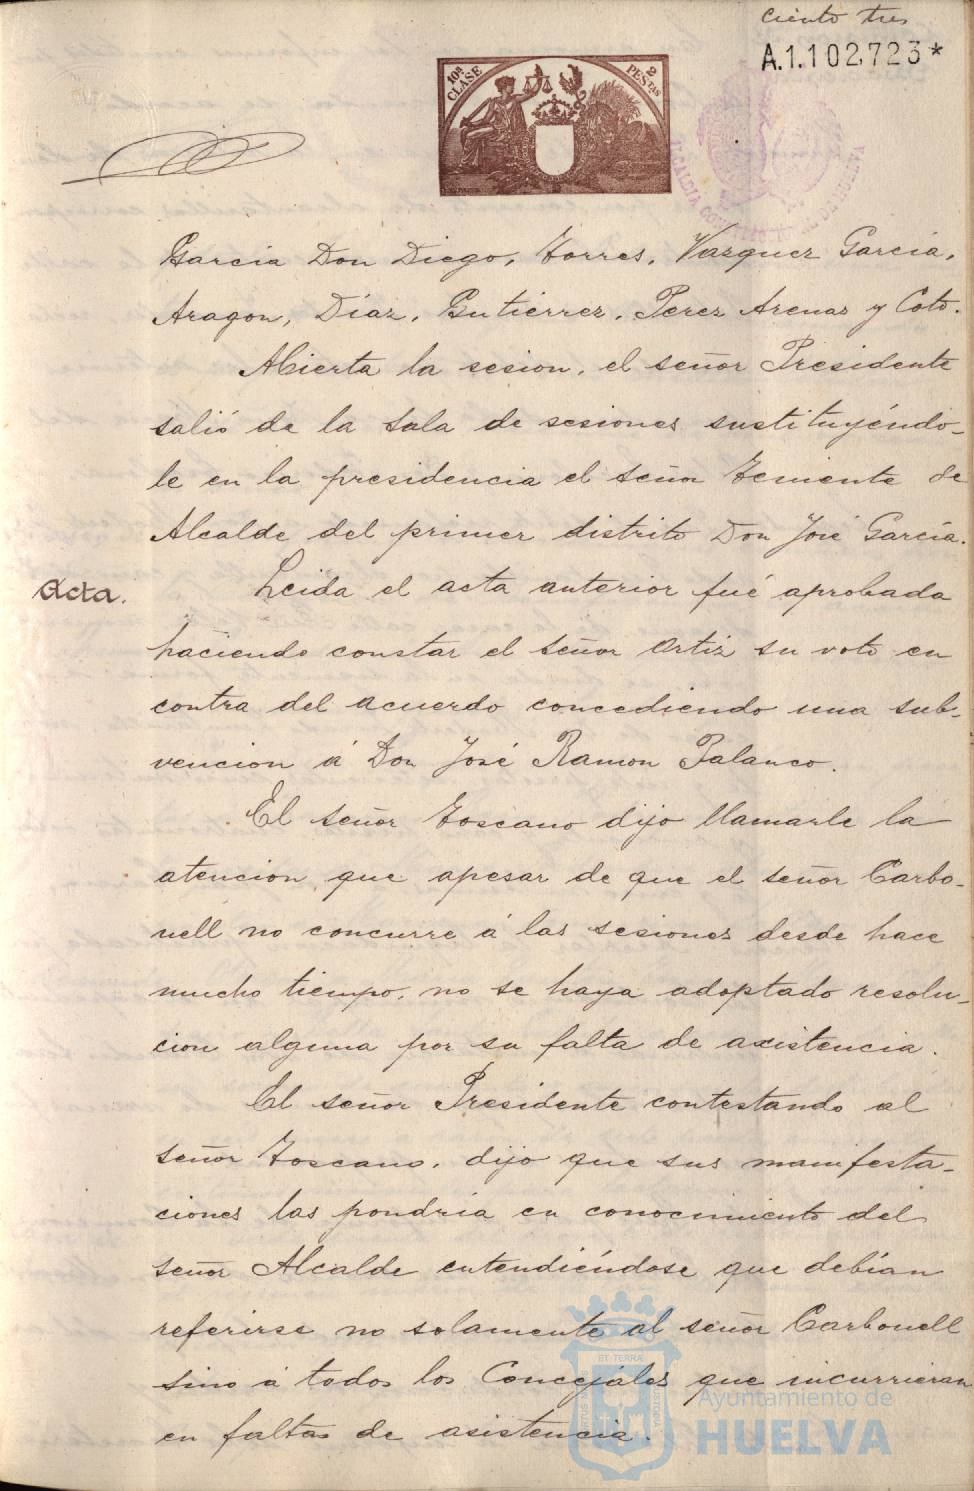 ciento tres
A.1.102.723*
10ª CLASE
2 PESTAS
Garcia Don Diego, Torres, Vazquez Garcia,
Aragon, Díaz, Gutierrez, Perez Arenas y Coto.
Abierta la sesion, el señor Presidente
salió de la sala de sesiones sustituyéndo-
le en la presidencia el señor Teniente de
Alcalde del primer distrito Don José García.
Acta.
Leida el acta anterior fué aprobada
haciendo constar el señor Ortiz su voto en
contra del acuerdo concediendo una sub-
vencion á Don José Ramon Palanco.
El señor Toscano dijo llamarle la
atencion que apesar de que el señor Carbo-
nell no concurre á las sesiones desde hace
mucho tiempo, no se haya adoptado resolu-
cion alguna por su falta de axistencia.
El señor Presidente contestando al
señor Toscano, dijo que sus manifesta-
ciones las pondria en conocimiento del
señor Alcalde entendiéndose que debían
referirse no solamente al señor Carbonell
sino á todos los Concejales que incurrieran
en faltas de asistencia.
Ayuntamiento de
HUELVA